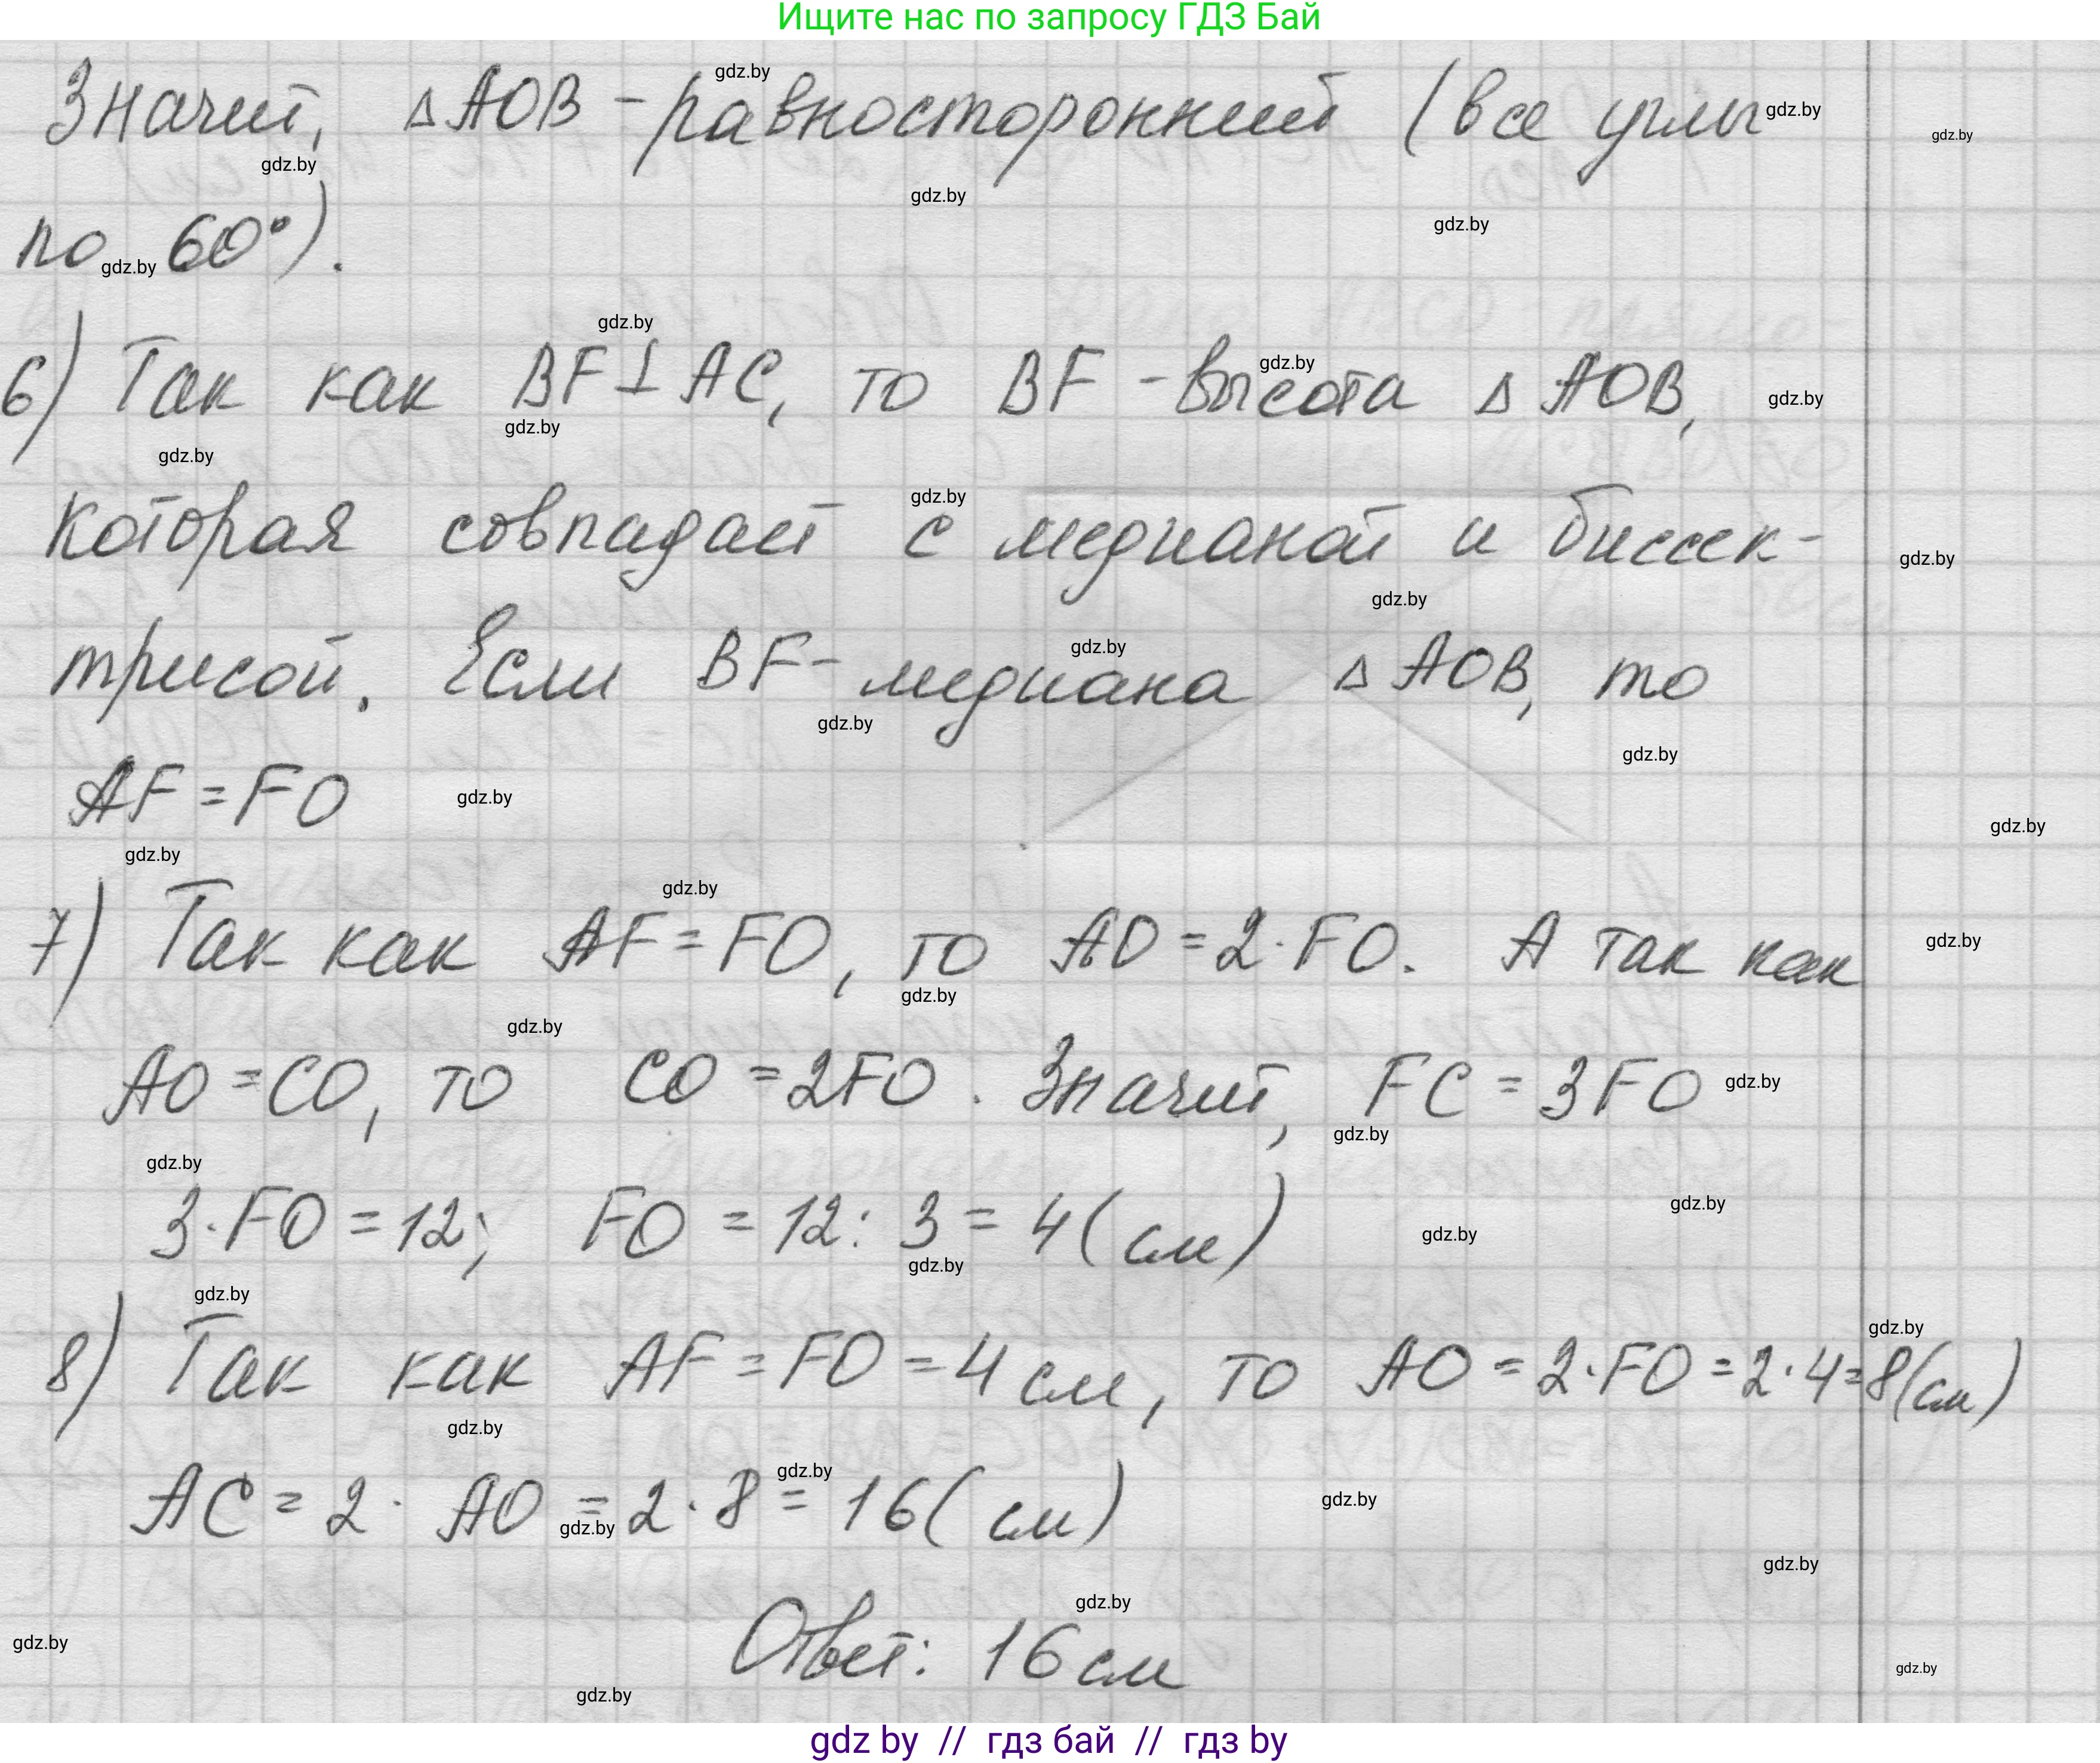 Ищите нас по запросу ГДЗ Бай
Значит, △AOB - равносторонний (все углы
по 60°).
6) Так как BF⊥AC, то BF - высота △AOB,
которая совпадает с медианой и биссек-
трисой. Если BF - медиана △AOB, то
AF = FO
7) Так как AF = FO, то AO = 2·FO. А так как
AO = CO, то CO = 2FO. Значит, FC = 3FO
3·FO = 12; FO = 12 : 3 = 4 (см)
8) Так как AF = FO = 4 см, то AO = 2·FO = 2·4 = 8 (см)
AC = 2· AO = 2·8 = 16 (см)
Ответ: 16 см
gdz by // гдз бай // гдз by